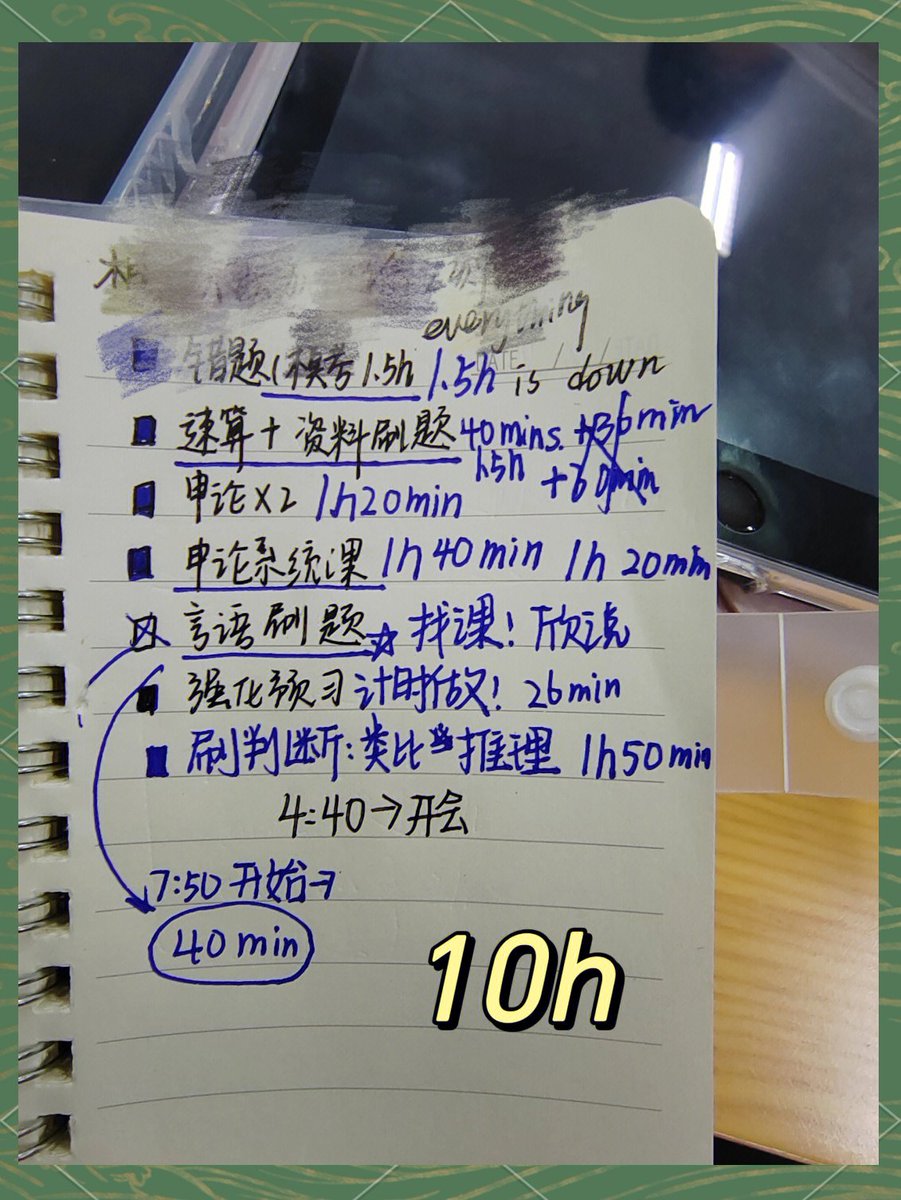 everything
错题(模考1.5h 1.5h is down
速算+资料刷题 40mins. +36min
1.5h +60min
申论×2 1h20min
申论系统课 1h40min 1h 20min
言语刷题☆找课！欣说
强化预习 计时折放！26min
刷判断:类比 推理 1h50min
4:40→开会
7:50开始→
40min
10h